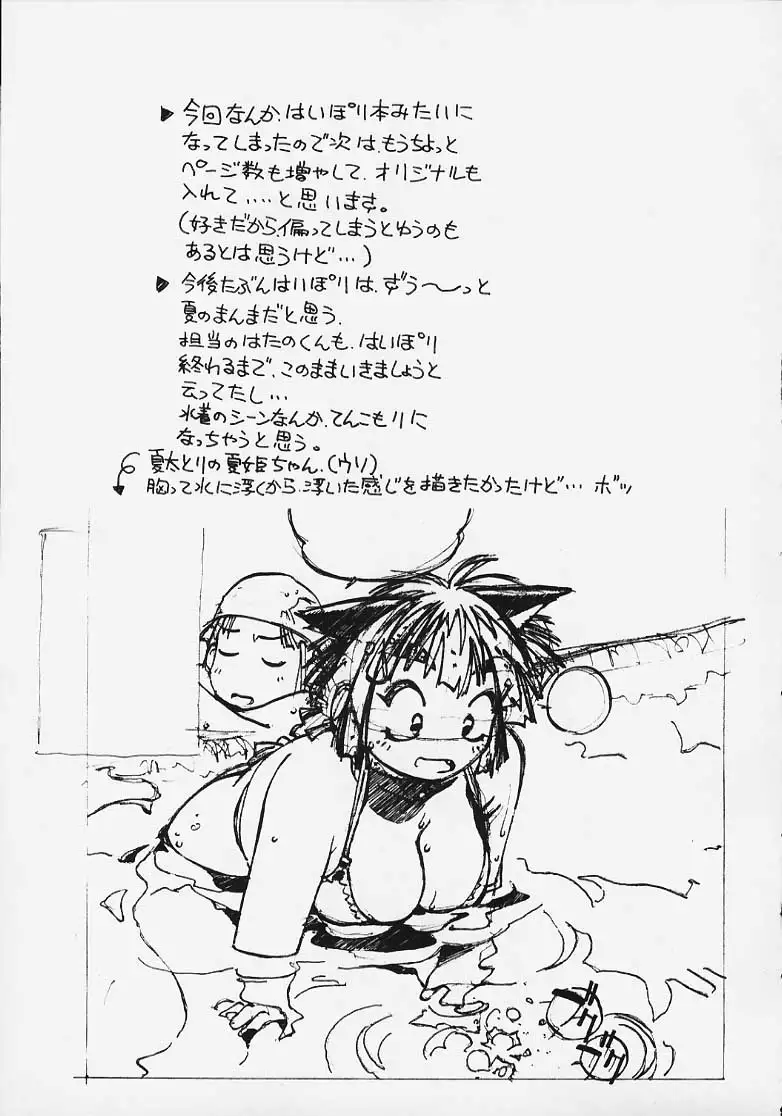 ▶ 今回なんか、はいぽり本みたいに
なってしまったので次は、もうちょっと
ページ数も増やして、オリジナルも
入れて‥‥と思います。
(好きだから、偏ってしまうとゆうのも
あるとは思うけど…)
▶ 今後たぶんはいぽりは、ずう〜っと
夏のまんまだと思う。
担当のはたのくんも、はいぽり
終わるまで、このままいきましょうと
云ってたし…
水着のシーンなんか、てんこもりに
なっちゃうと思う。
夏太とりの夏姫ちゃん。(ウソ)
胸って水に浮くから、浮いた感じを描きたかったけど… ボツ